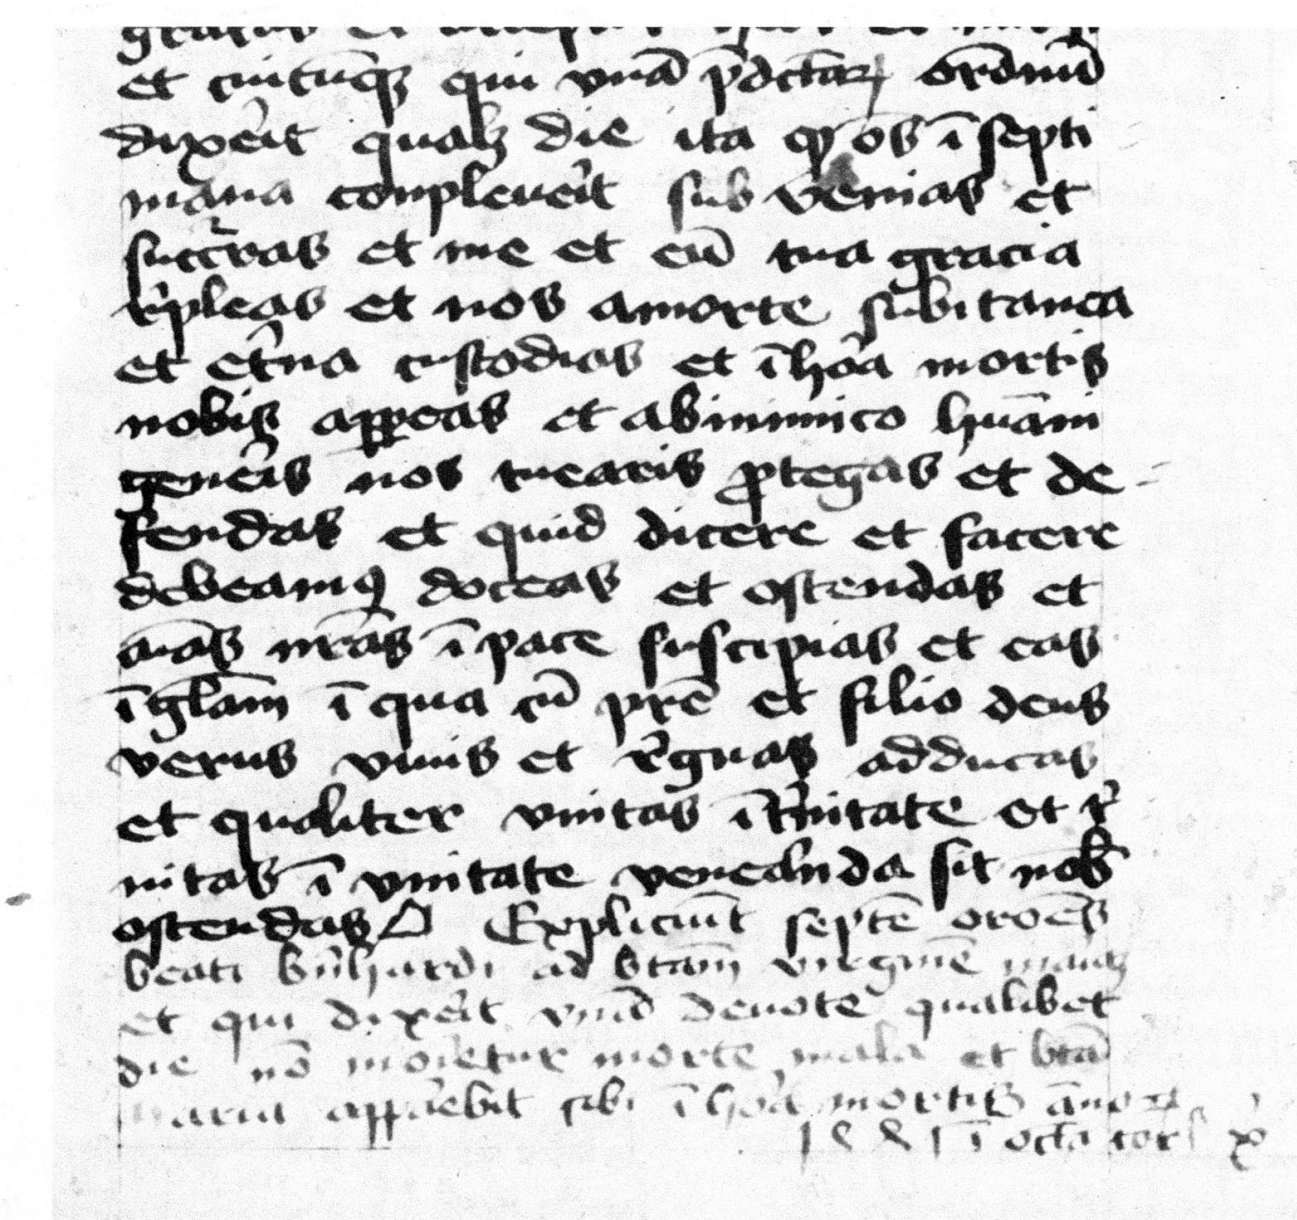 et cuicūqꝫ qui vnā p̄dcta​rꝝ ordinū
dixeīt qualꝫ die ita ꝙ oēs ī septi
mana conpleueīt subveniās et
succras et me et eū tua gracia
r̄pleas et nos amorte subitanea
et et̄na custodias et ī hōra mortis
nobis appeās et abinimico hūani
geneīs nos tuearis ꝓtegas et de-
fendas et quid dicere et facere
debeamꝰ doceas et ostendas et
aīas nr̄as ī pace suscipias et eas
ī glam̄ ī qua cū pr̄e et filio deus
verus viuis et r̄gnas adducas
et qualiter vnitas ī t̄nitate et t̄
nitas ī vnitate veneāda sit nob̄
ostendas Expliciūt septē or̄oēs
beati b̄nhardi ad btām virginē mariā
et qui dixeīt vnā deuote qualibet
die nō morietur morte mala et btā
maria appaēbit sibi ī hōra mortis
ī octā